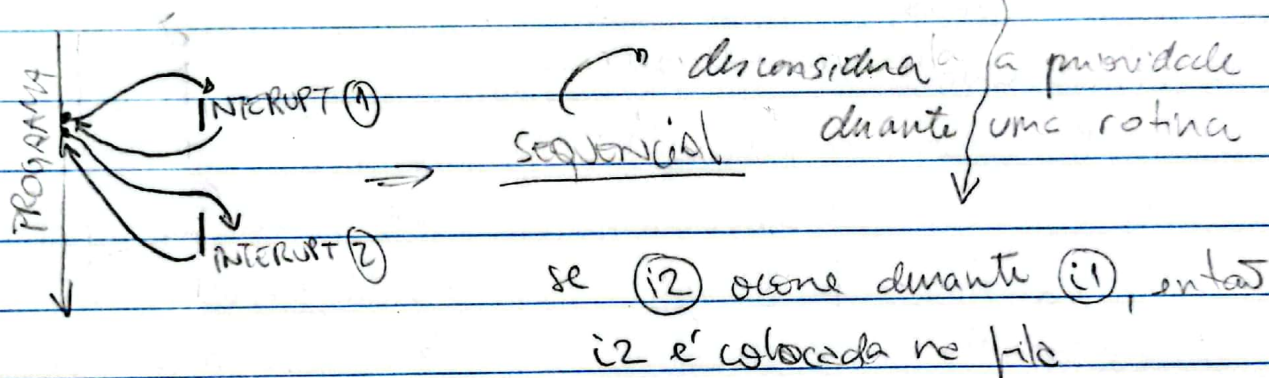 PROGAMA
INTERUPT 1
INTERUPT 2
SEQUENCIAL
desconsidera a prioridade
durante uma rotina
se i2 ocorre durante i1, então
i2 é colocada na fila